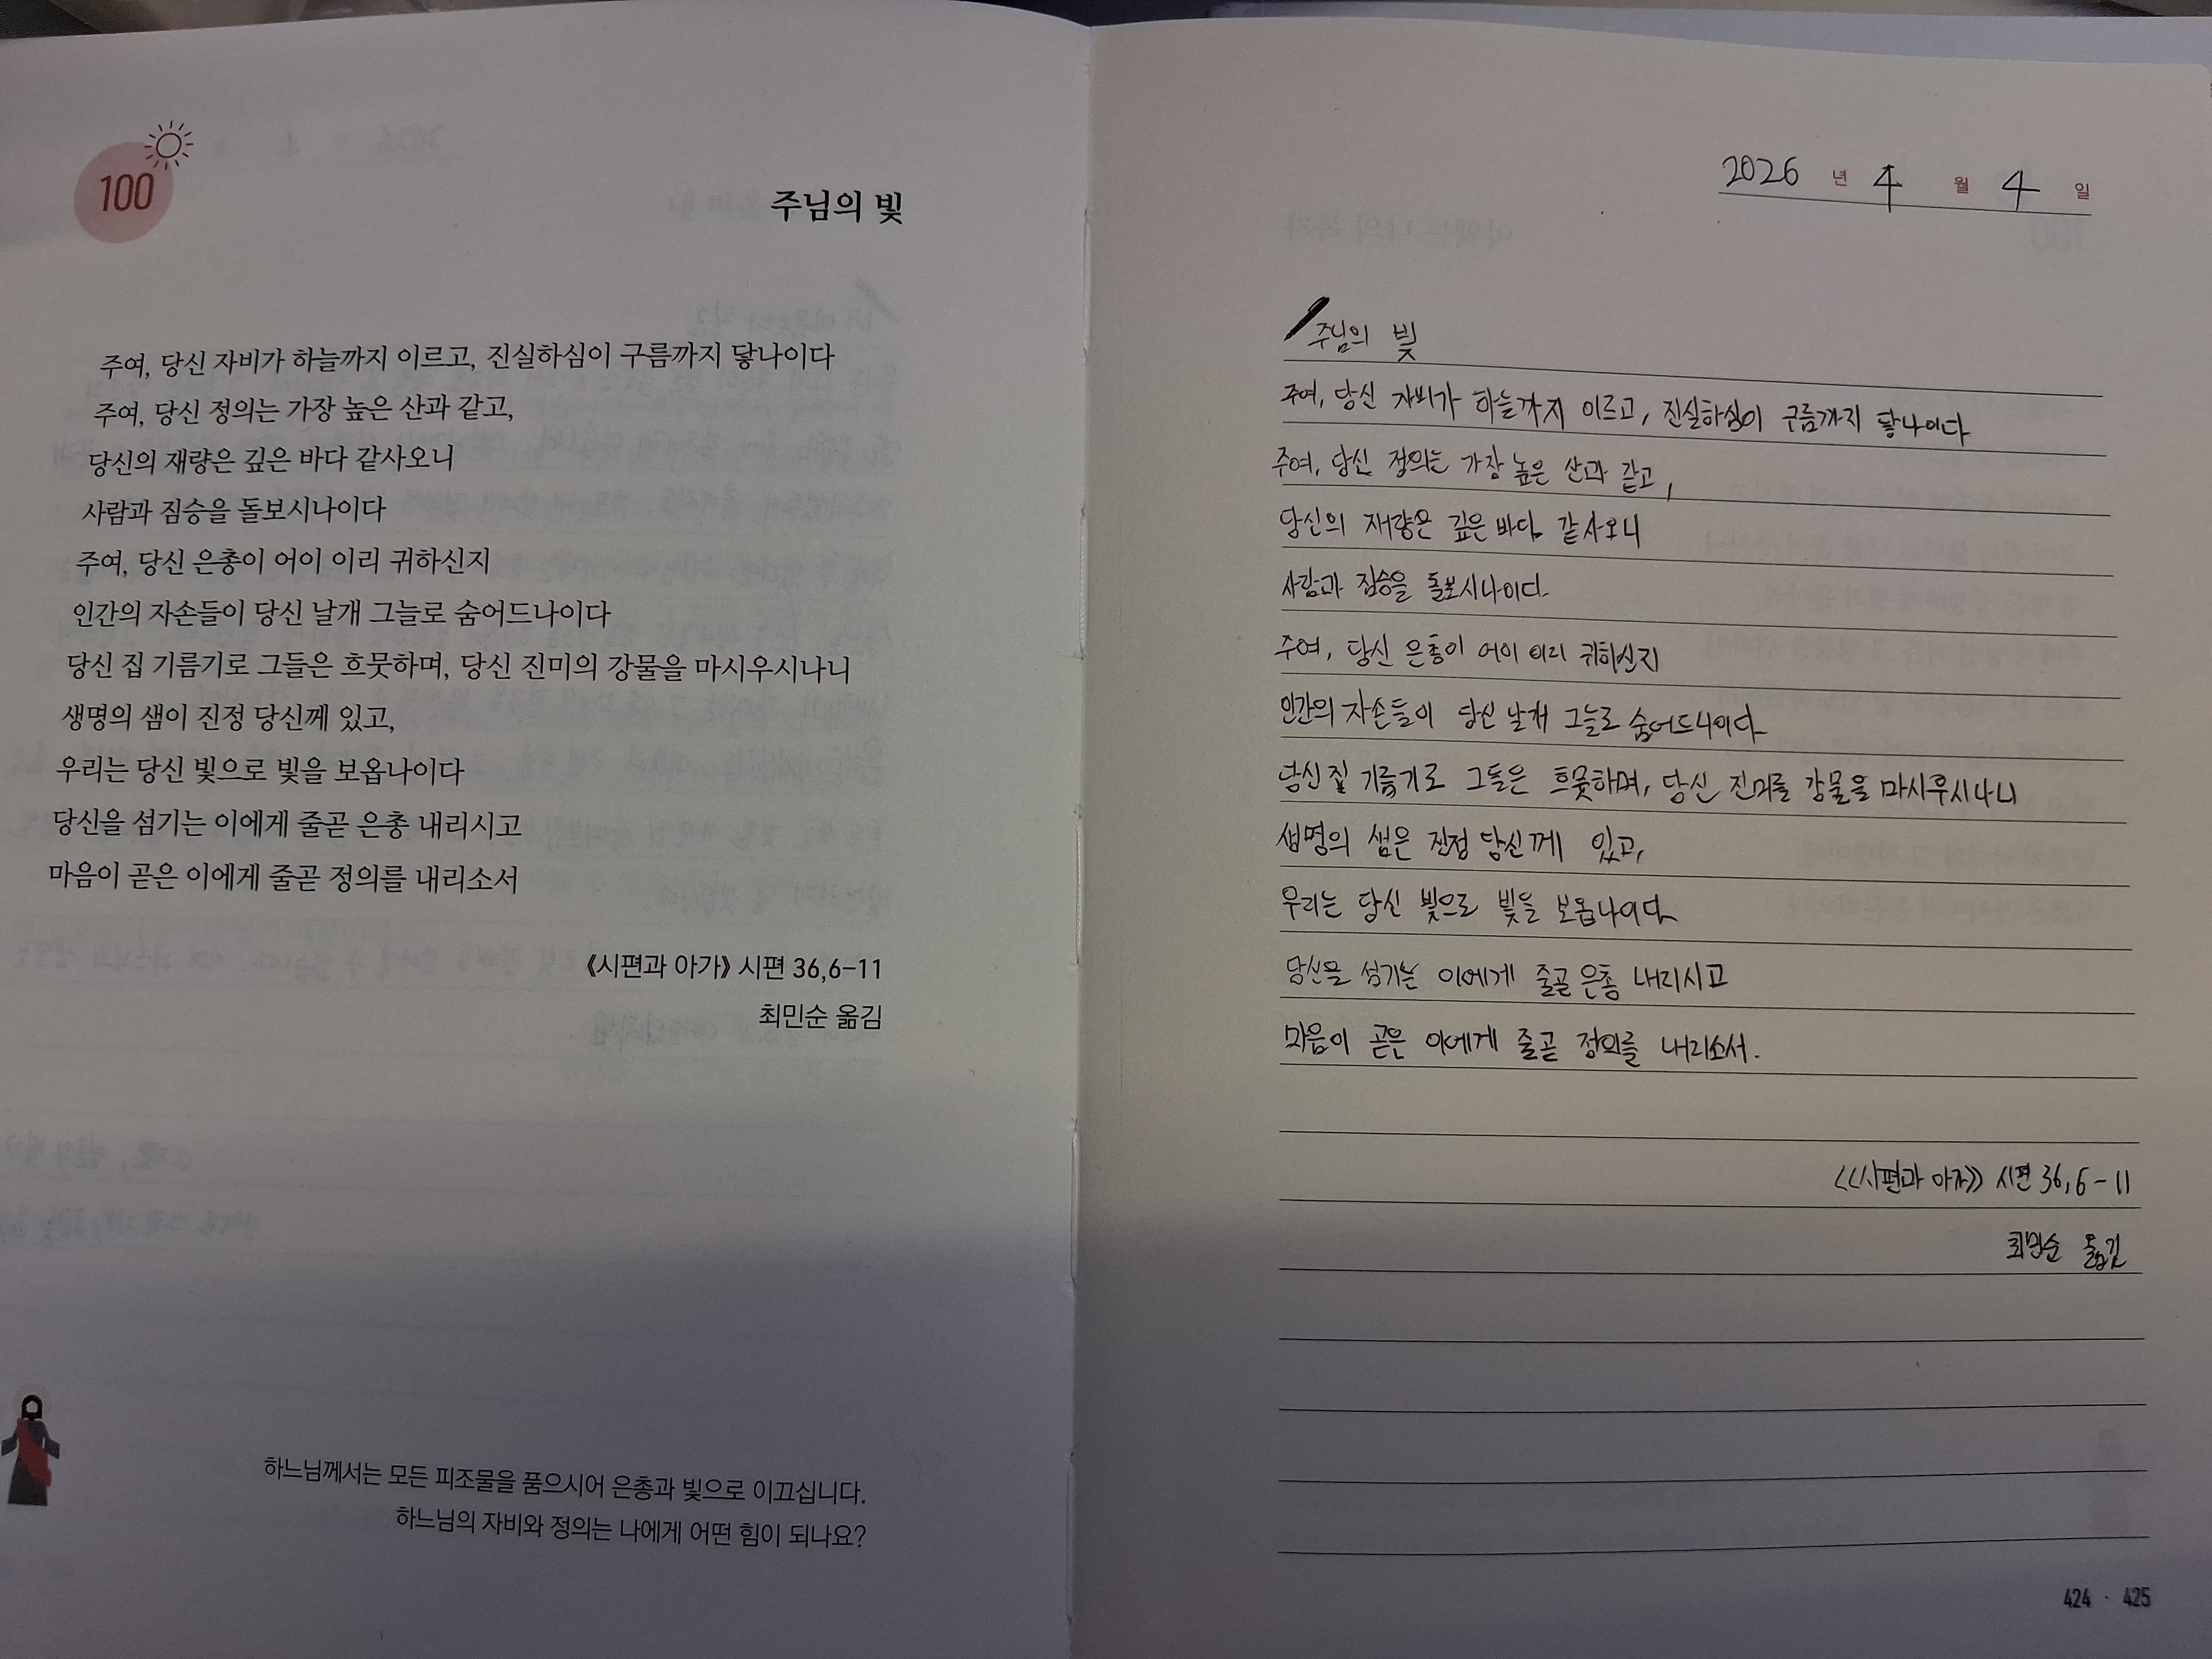 100
주님의 빛
주여, 당신 자비가 하늘까지 이르고, 진실하심이 구름까지 닿나이다
주여, 당신 정의는 가장 높은 산과 같고,
당신의 재량은 깊은 바다 같사오니
사람과 짐승을 돌보시나이다
주여, 당신 은총이 어이 이리 귀하신지
인간의 자손들이 당신 날개 그늘로 숨어드나이다
당신 집 기름기로 그들은 흐뭇하며, 당신 진미의 강물을 마시우시나니
생명의 샘이 진정 당신께 있고,
우리는 당신 빛으로 빛을 보옵나이다
당신을 섬기는 이에게 줄곧 은총 내리시고
마음이 곧은 이에게 줄곧 정의를 내리소서
《시편과 아가》 시편 36,6–11
최민순 옮김
하느님께서는 모든 피조물을 품으시어 은총과 빛으로 이끄십니다.
하느님의 자비와 정의는 나에게 어떤 힘이 되나요?
2026 년 4 월 4 일
주님의 빛
주여, 당신 자비가 하늘까지 이르고, 진실하심이 구름까지 닿나이다
주여, 당신 정의는 가장 높은 산과 같고,
당신의 재량은 깊은 바다 같사오니
사람과 짐승을 돌보시나이다
주여, 당신 은총이 어이 이리 귀하신지
인간의 자손들이 당신 날개 그늘로 숨어드나이다
당신 집 기름기로 그들은 흐뭇하며, 당신 진미를 강물을 마시우시나니
생명의 샘은 진정 당신께 있고,
우리는 당신 빛으로 빛을 보옵나이다
당신을 섬기는 이에게 줄곧 은총 내리시고
마음이 곧은 이에게 줄곧 정의를 내리소서.
《시편과 아가》 시편 36,6-11
최민순 옮김
424 · 425